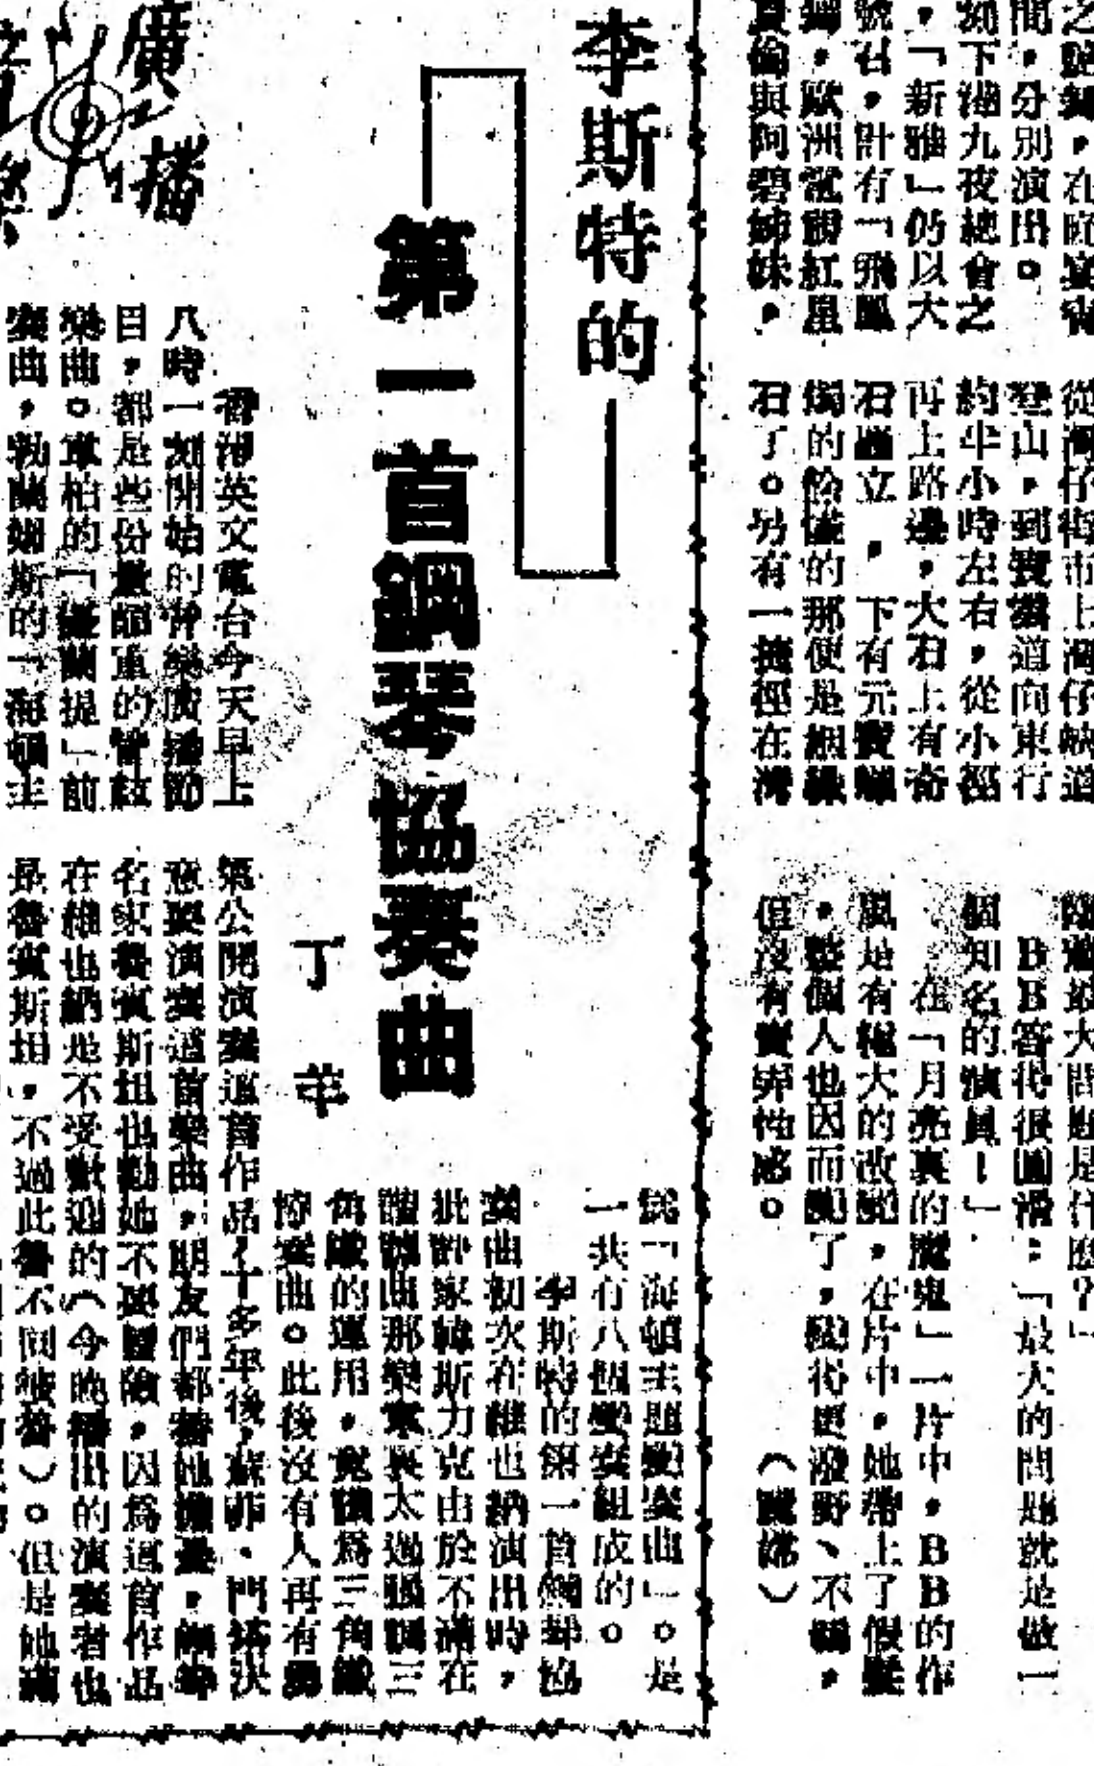 之艷舞,在晚宴宵
間,分別演出。
刻下港九夜總會之
,「新雅」仍以大
號召,計有「飛鳳
團,歐洲電視紅星
貝倫與阿碧姊妹,
從灣仔街市上灣仔峽道
登山,到寶雲道向東行
約半小時左右,從小徑
再上路邊,大石上有奇
石矗立,下有元寶蠟
燭的餘燼的那便是姻緣
石了。另有一捷徑在灣
最大問題是什麽?」
BB答得很圓滑:「最大的問題就是做一
個知名的演員!」
在「月亮裏的魔鬼」一片中,BB的作
風是有極大的改變,在片中,她帶上了假髮
,整個人也因而變了,技術更潑野、不羈,
但沒有賣弄性感。
廣播
音樂
李斯特的
第一首鋼琴協奏曲
丁羊
香港英文電台今天早上
八時一刻開始的音樂廣播節
目,都是些份量頗重的管絃
樂曲。韋柏的「優蘭提」前
奏曲,勃蘭姆斯的「海頓主
題「海頓主題變奏曲」。是
一共有八個變奏組成的。
李斯特的第一首鋼琴協
奏曲初次在維也納演出時,
批評家韓斯力克由於不滿在
諧謔曲那樂章裏太過强調三
角鐵的運用,竟譏爲三角鐵
協奏曲。此後沒有人再有勇
氣公開演奏這首作品,十多年後,蘇菲、門塔決
意要演奏這首樂曲,朋友們都替她擔憂,鋼琴
名家魯賓斯坦也勸她不要冒險,因爲這首作品
在維也納是不受歡迎的(今晚播出的演奏者也
是魯賓斯坦,不過此魯不同彼魯)。但是她